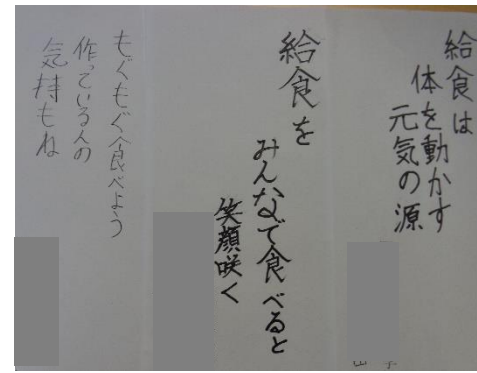 給食は
体を動かす
元気の源
給食を
みんなで食べると
笑顔咲く
もぐもぐ食べよう
作っている人の
気持もね